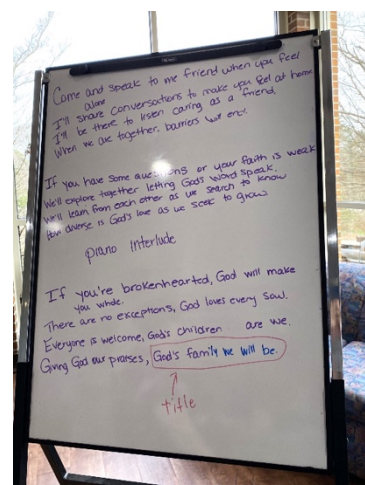 Come and speak to me friend when you feel
alone
I'll share conversations to make you feel at home
I'll be there to listen caring as a friend,
When we are together, barriers will end.
If you have some questions or your faith is weak
We'll explore together letting God's word speak.
We'll learn from each other as we search to know
How diverse is God's love as we seek to grow
piano interlude
If you're brokenhearted, God will make
you whole.
There are no exceptions, God loves every soul.
Everyone is welcome, God's children are we.
Giving God our praises, God's family we will be.
title